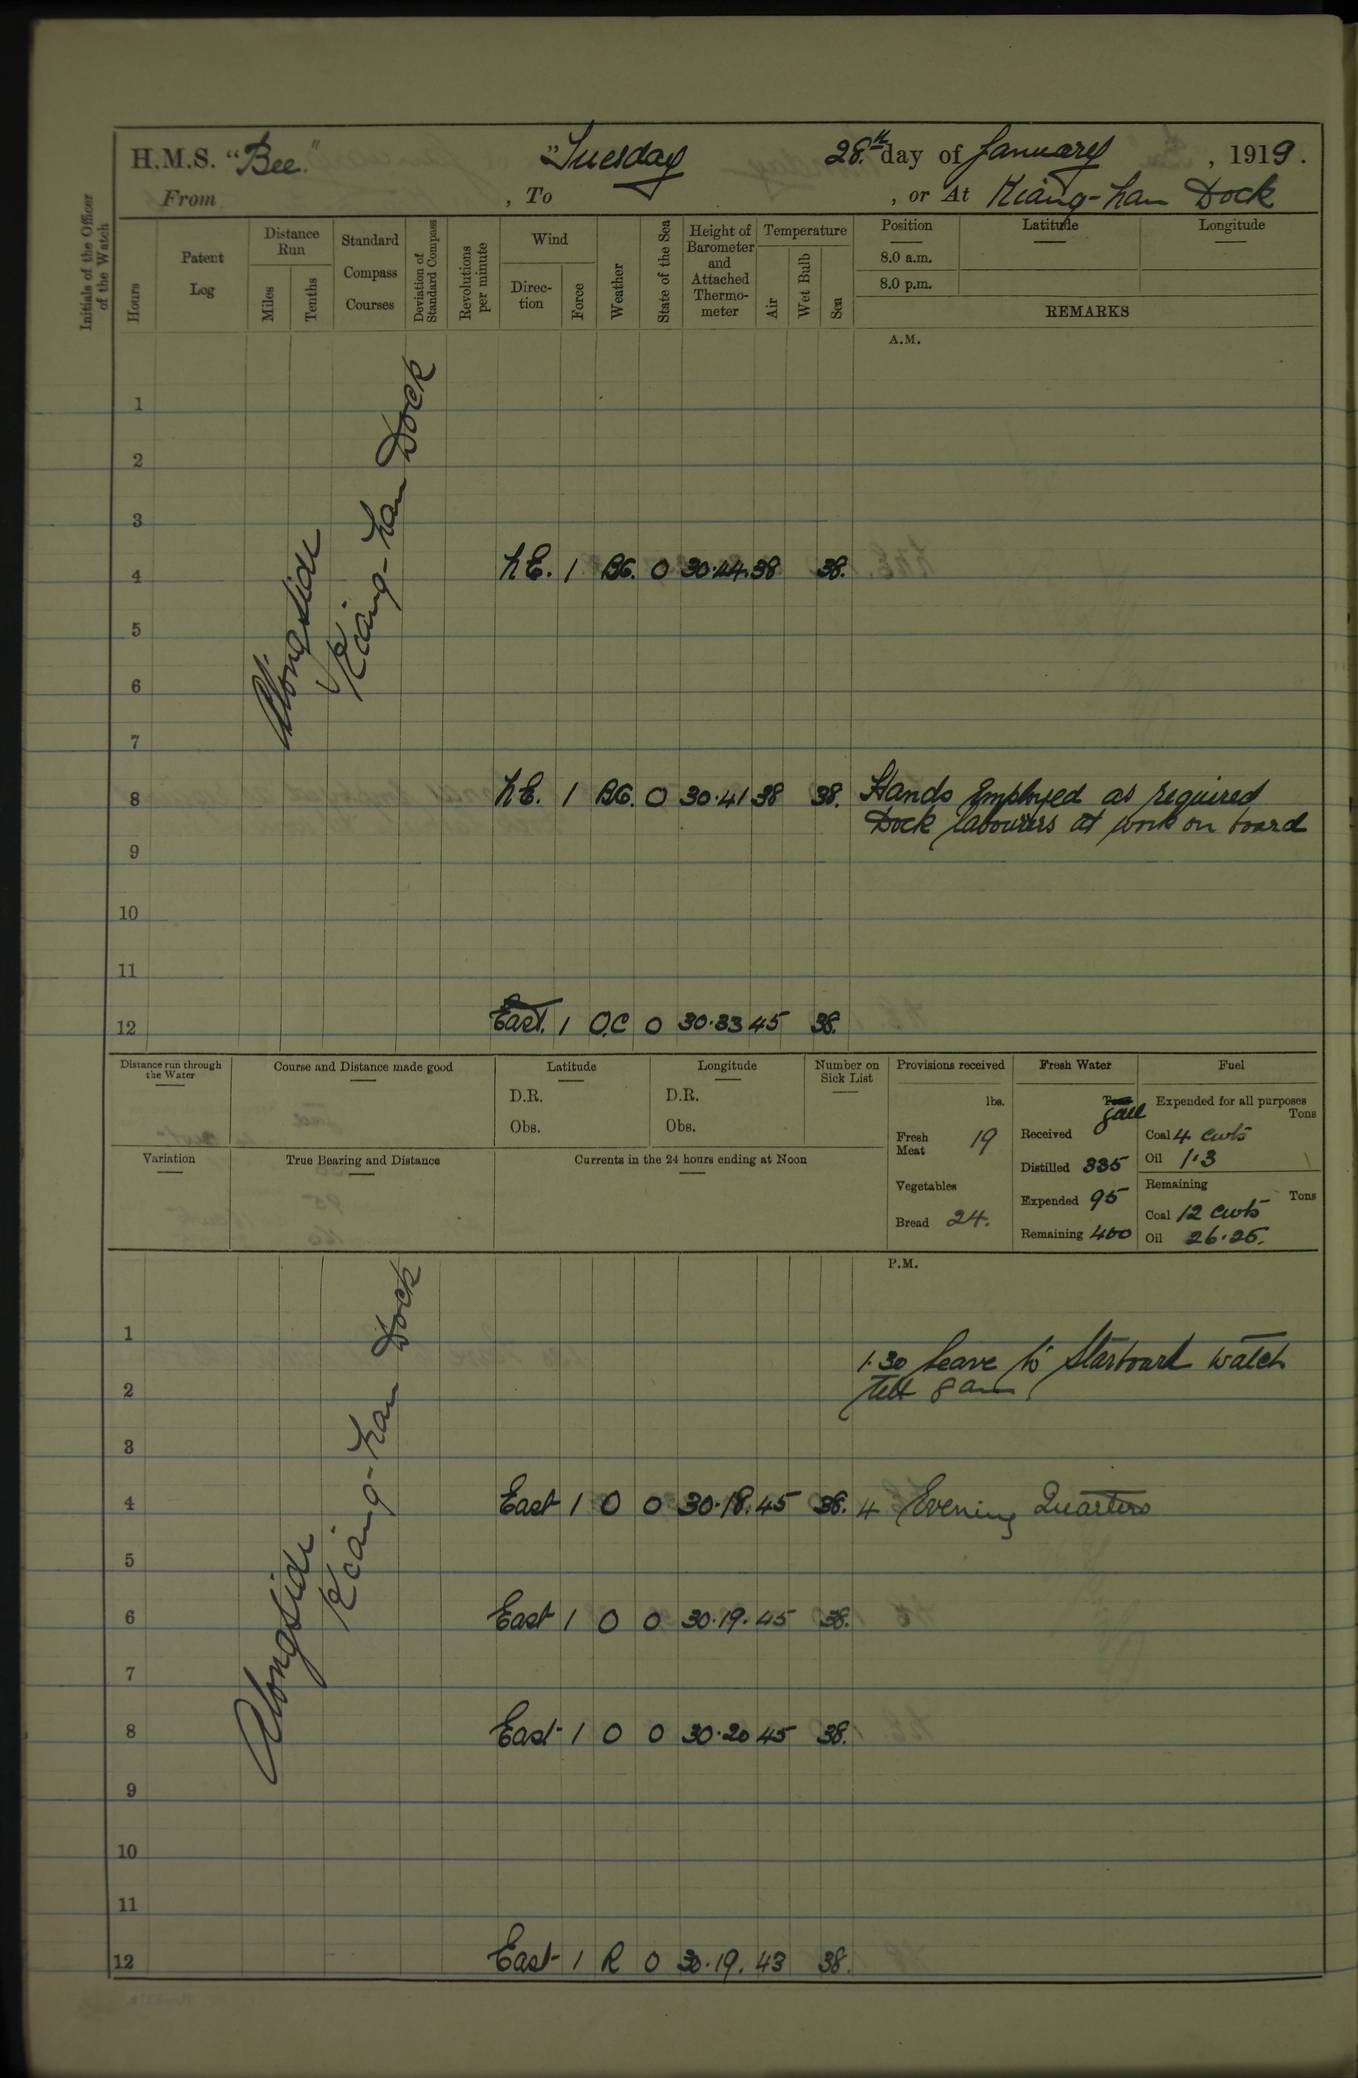 H.M.S. "Bee." "Tuesday 28.th day of January, 1919.
From , To , or At Kiang-han Dock
Initials of the Officer of the Watch
Hours
Patent Log
Distance Run
Miles
Tenths
Standard Compass Courses
Deviation of Standard Compass
Revolutions per minute
Wind
Direction
Force
Weather
State of the Sea
Height of Barometer and Attached Thermometer
Temperature
Air
Wet Bulb
Sea
Position Latitude Longitude
8.0 a.m.
8.0 p.m.
REMARKS
A.M.
Alongside
Kiang-han Dock
1
2
3
4 N.E. 1 BC. 0 30.44. 38 38.
5
6
7
8 N.E. 1 BC. 0 30.41 38 38. Hands Employed as required
Dock labourers at work on board
9
10
11
12 East. 1 O.C 0 30.33 45 38.
Distance run through the Water
Course and Distance made good
Latitude
D.R.
Obs.
Longitude
D.R.
Obs.
Number on Sick List
Variation
True Bearing and Distance
Currents in the 24 hours ending at Noon
Provisions received
lbs.
Fresh Meat 19
Vegetables
Bread 24.
Fresh Water
Tons gall
Received
Distilled 335
Expended 95
Remaining 400
Fuel
Expended for all purposes
Tons
Coal 4 cwts
Oil 1.3
Remaining
Tons
Coal 12 cwts
Oil 26.25.
P.M.
Alongside
Kiang-han Dock
1
1.30 Leave to Starboard watch
2 till 8 am
3
4 East 1 O 0 30.18. 45 38. 4 Evening Quarters
5
6 East 1 O 0 30.19. 45 38.
7
8 East 1 O 0 30.20 45 38.
9
10
11
12 East 1 R 0 30.19. 43 38.